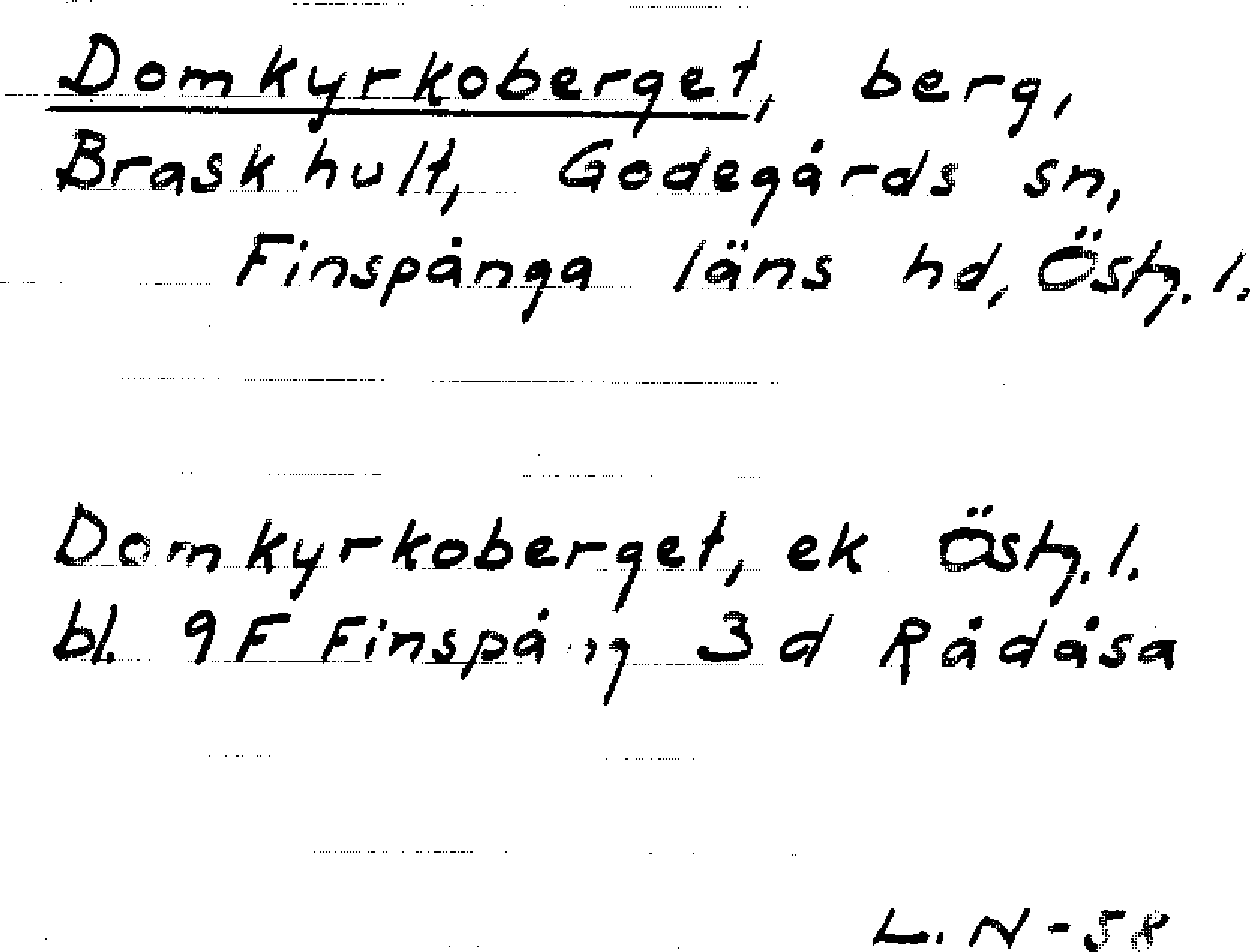 Domkyrkoberget, berg,
Braskhult, Godegårds sn,
Finspånga läns hd, Östg. l.
Domkyrkoberget, ek Östg. l.
bl. 9F Finspång 3d Rådåsa
L. N - 58